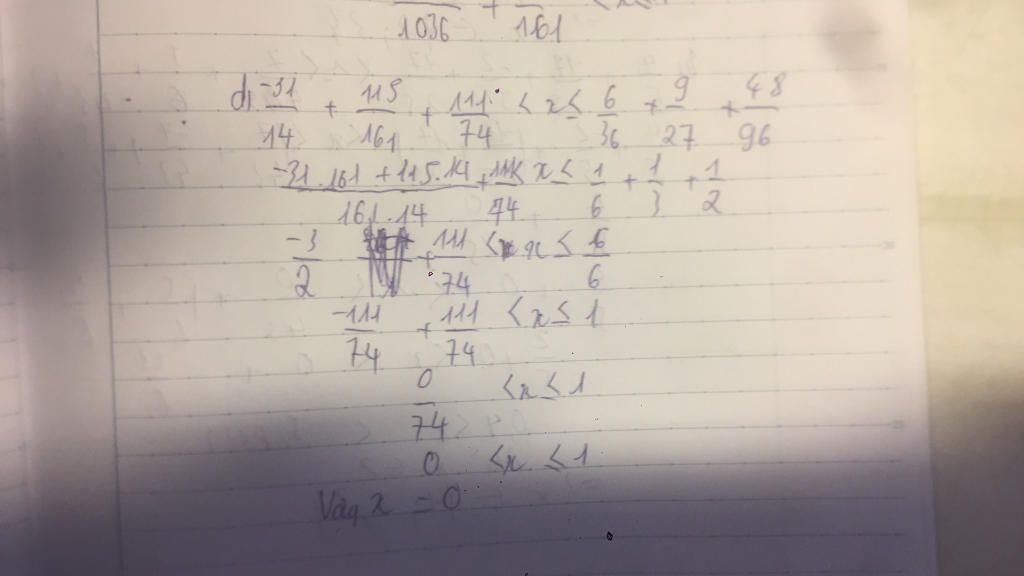 1036 + 161
d) -31/14 + 115/161 + 111/74 < x ≤ 6/36 + 9/27 + 48/96
-31.161 + 115.14/161.14 + 111/74 < x ≤ 1/6 + 1/3 + 1/2
-3/2 + 111/74 < x ≤ 6/6
-111/74 + 111/74 < x ≤ 1
0/74 < x ≤ 1
0 < x ≤ 1
Vậy x = 0